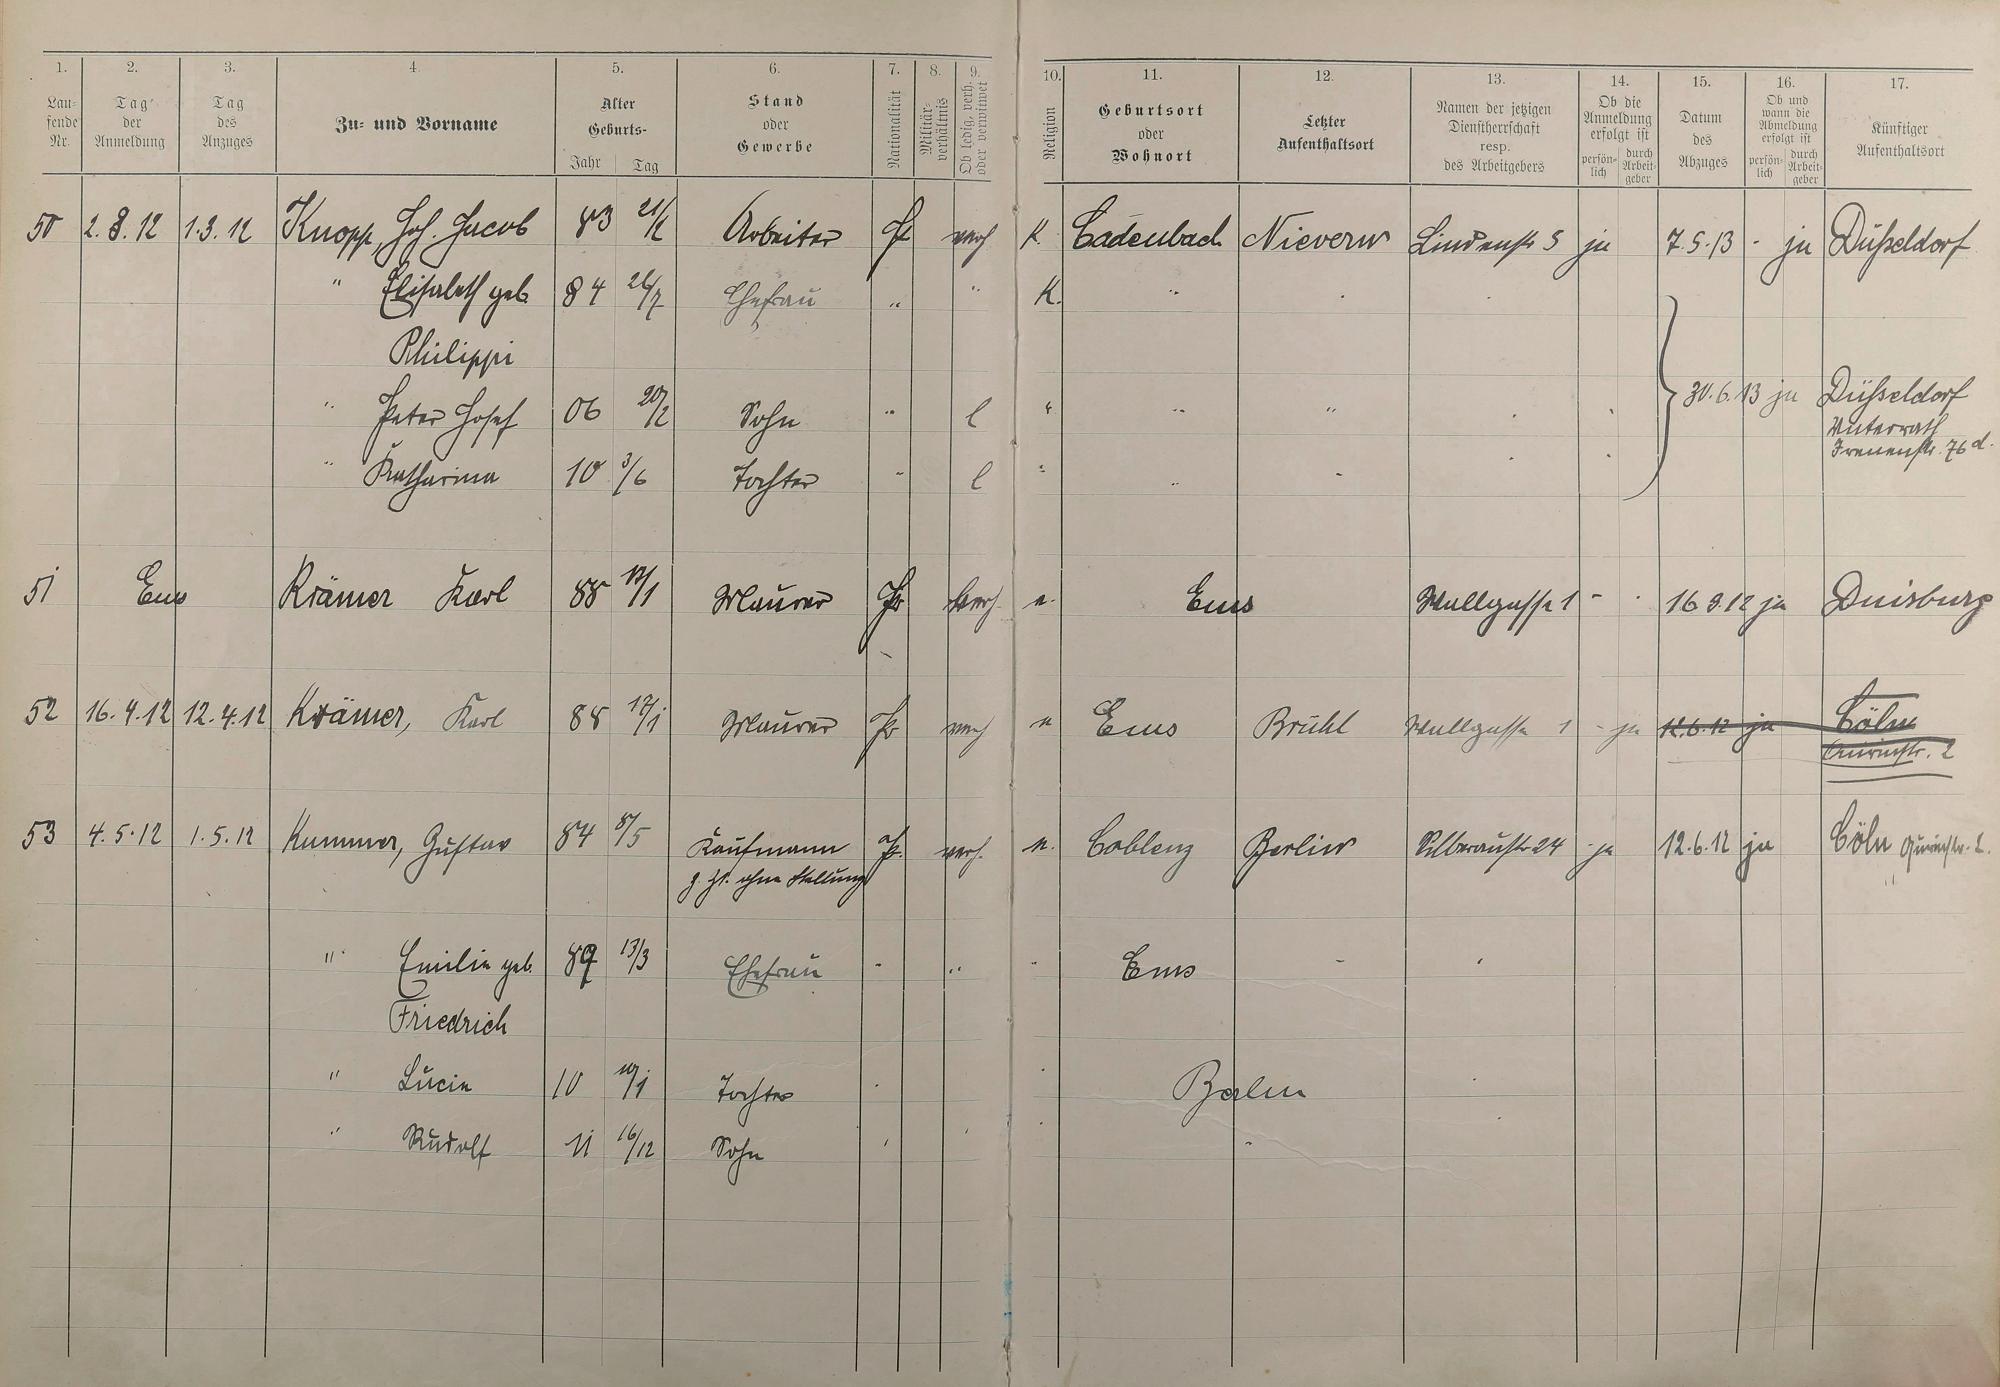 1. 2. 3. 4. 5. 6. 7. 8. 9. 10. 11. 12. 13. 14. 15. 16. 17.
Lau-
fende
Nr.
Tag
der
Anmeldung
Tag
des
Anzuges
Zu- und Vorname
Alter
Geburts-
Jahr Tag
Stand
oder
Gewerbe
Nationalität
Militär-
verhältnis
Ob ledig, verh.
oder verwitwet
Religion
Geburtsort
oder
Wohnort
Letzter
Aufenthaltsort
Namen der jetzigen
Dienstherrschaft
resp.
des Arbeitgebers
Ob die
Anmeldung
erfolgt ist
persön-
lich
durch
Arbeit-
geber
Datum
des
Abzuges
Ob und
wann die
Abmeldung
erfolgt ist
persön-
lich
durch
Arbeit-
geber
Künftiger
Aufenthaltsort
50 2.3.12 1.3.12 Knopp, Joh. Jacob 83 Arbeiter Pr verh K. Cadenbach Nievern Lindenstr 5 ja 7.5.13 - ja Düsseldorf
" Elisabeth geb. 84 26/7 Ehefrau " " K. "
Philippi
" Peter Josef 06 20/2 Sohn " l " " " 30.6.13 ja Düsseldorf
Unterrath
Irenenstr. 76d.
" Katharina 10 3/6 Tochter " l " "
51 Ems Krämer Karl 88 17/1 Maurer Pr verh. e. Ems Wallgasse 1 - 16 9.12 ja Duisburg
52 16.4.12 12.4.12 Krämer, Karl 88 17/1 Maurer Pr verh e Ems Brühl Wallgasse 1 - ja 12.6.12 ja Cöln
Quirinstr. 2
53 4.5.12 1.5.12 Kummer, Gustav 84 8/5 Kaufmann Pr. verh. e. Coblenz Berlin Silberaustr 24 ja 12.6.12 ja Cöln Quirinstr. 2.
z. Zt. ohne Stellung
" Emilie geb. 89 13/3 Ehefrau " " " Ems
Friedrich
" Lucie 10 Tochter Berlin
" Rudolf 11 16/12 Sohn "